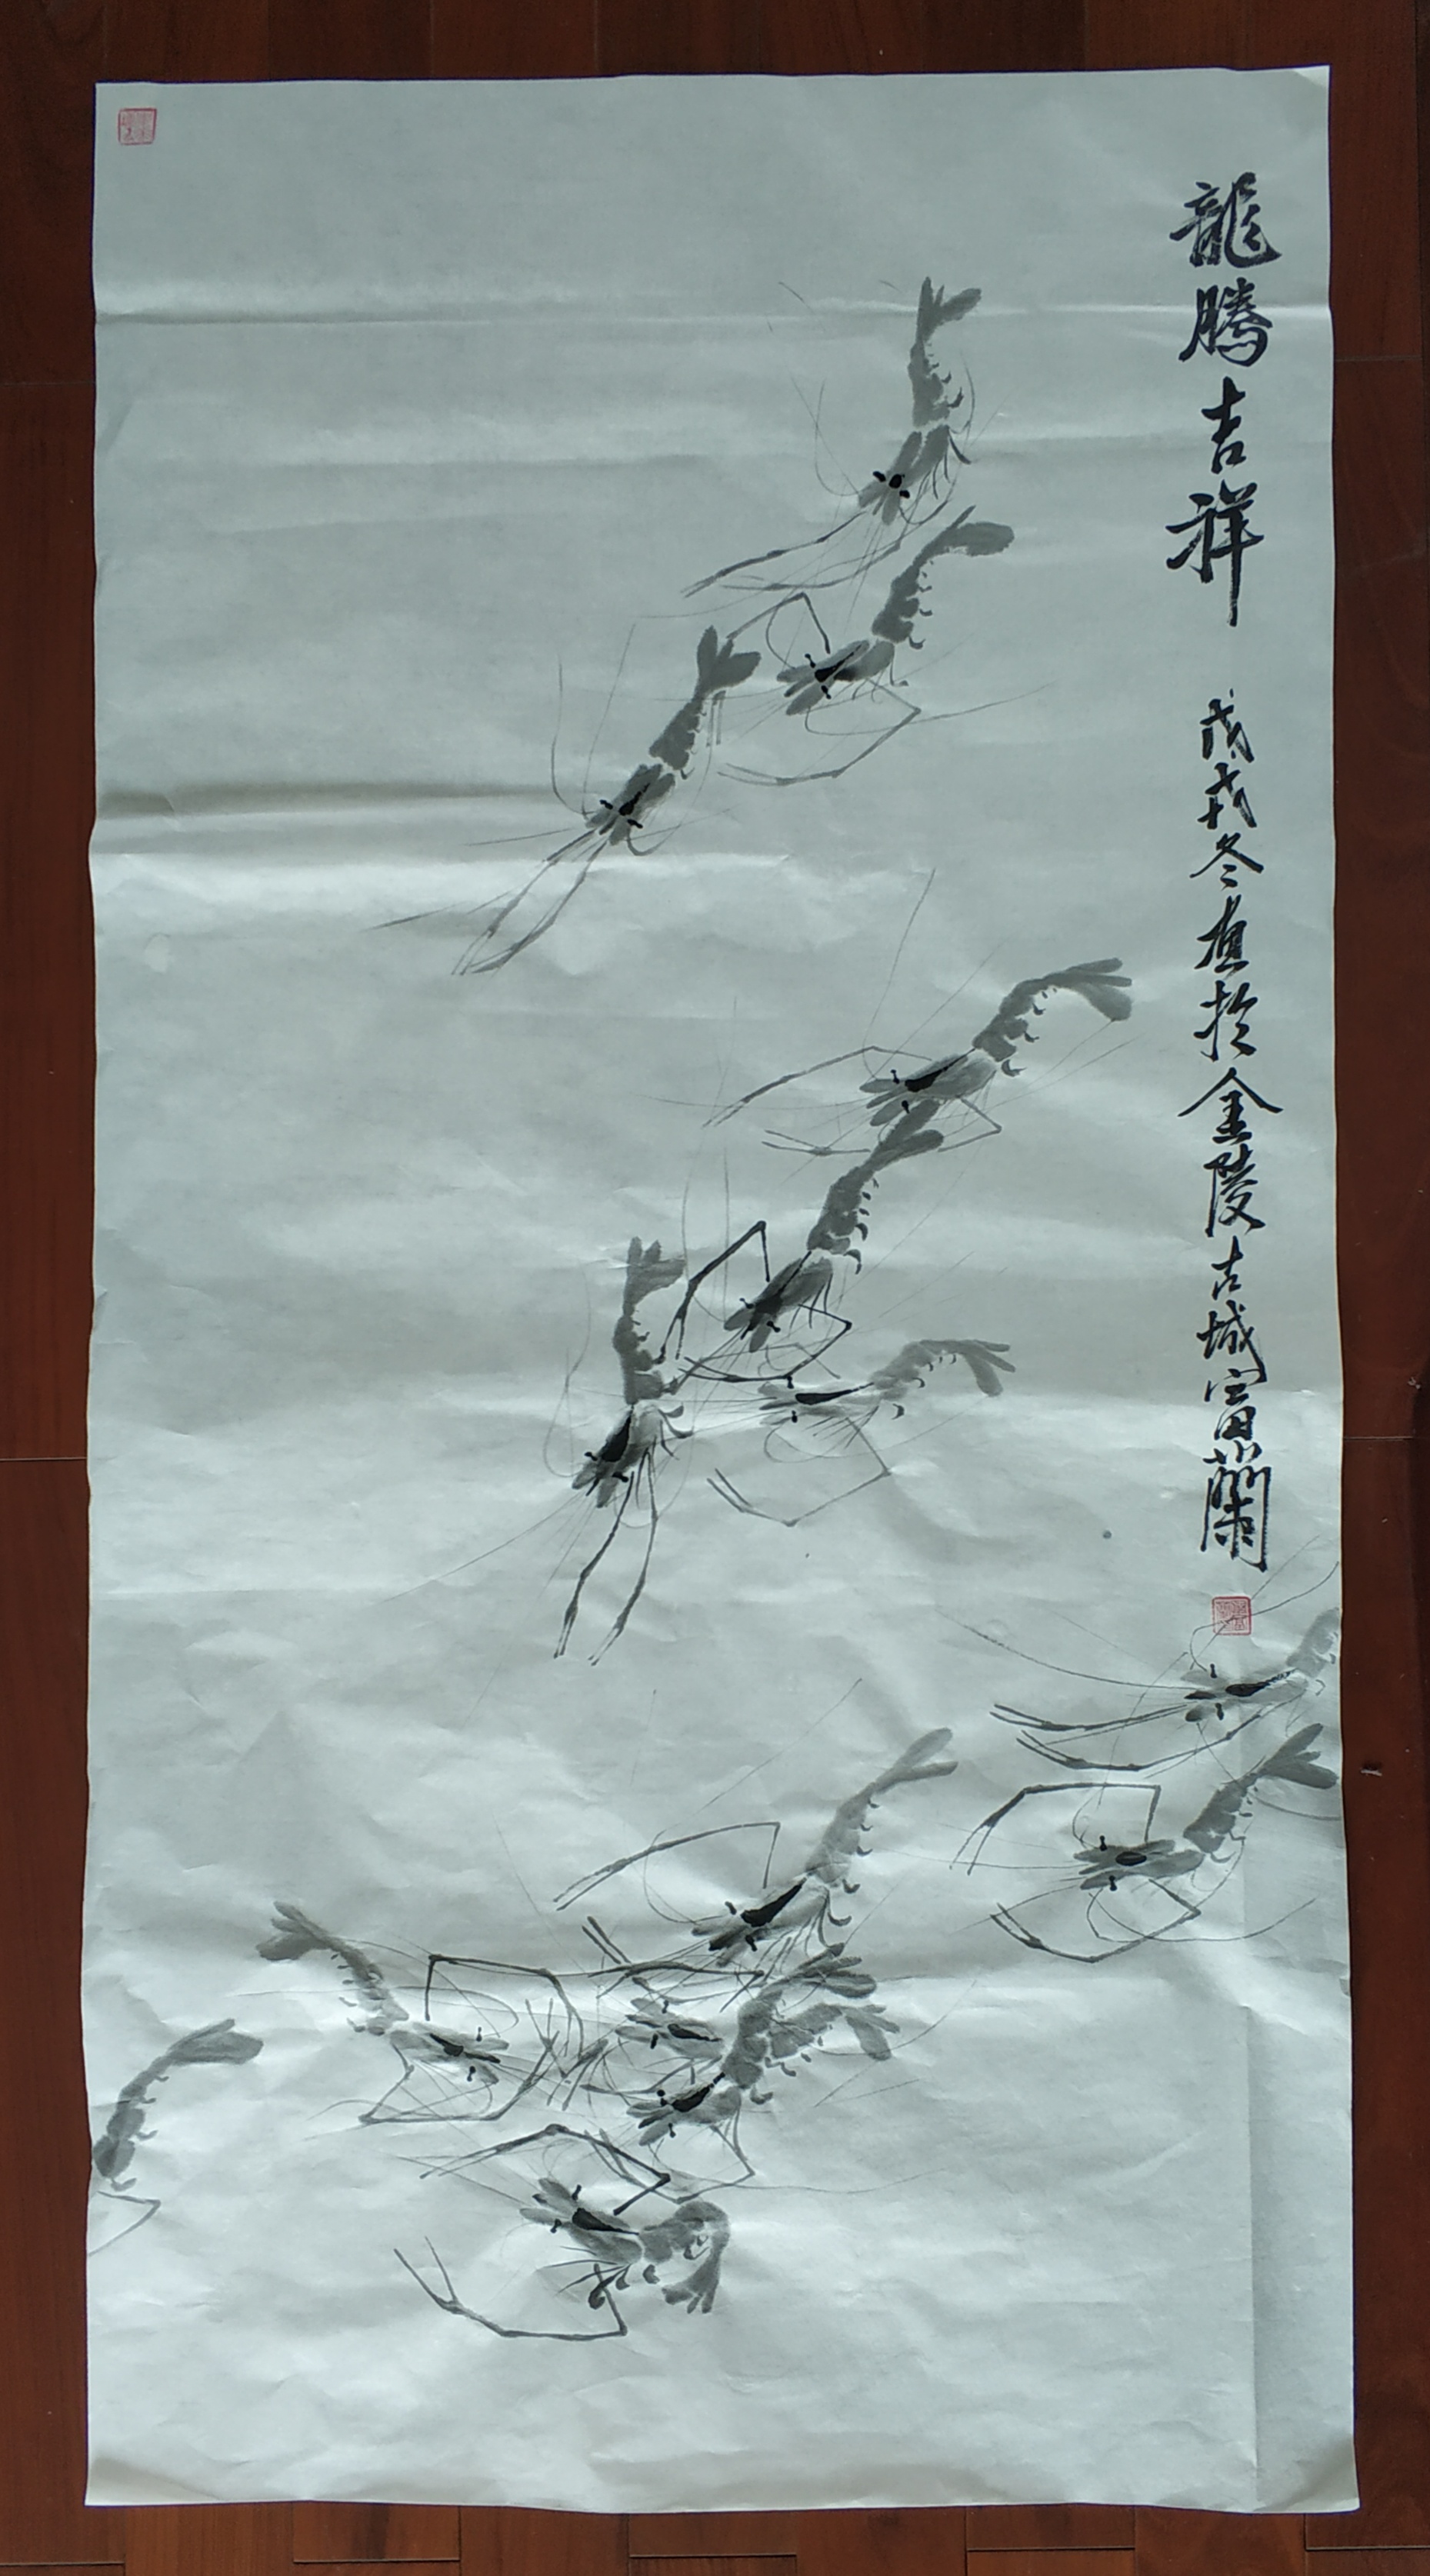 龍騰吉祥
戊戌冬畫於金陵古城富蘭